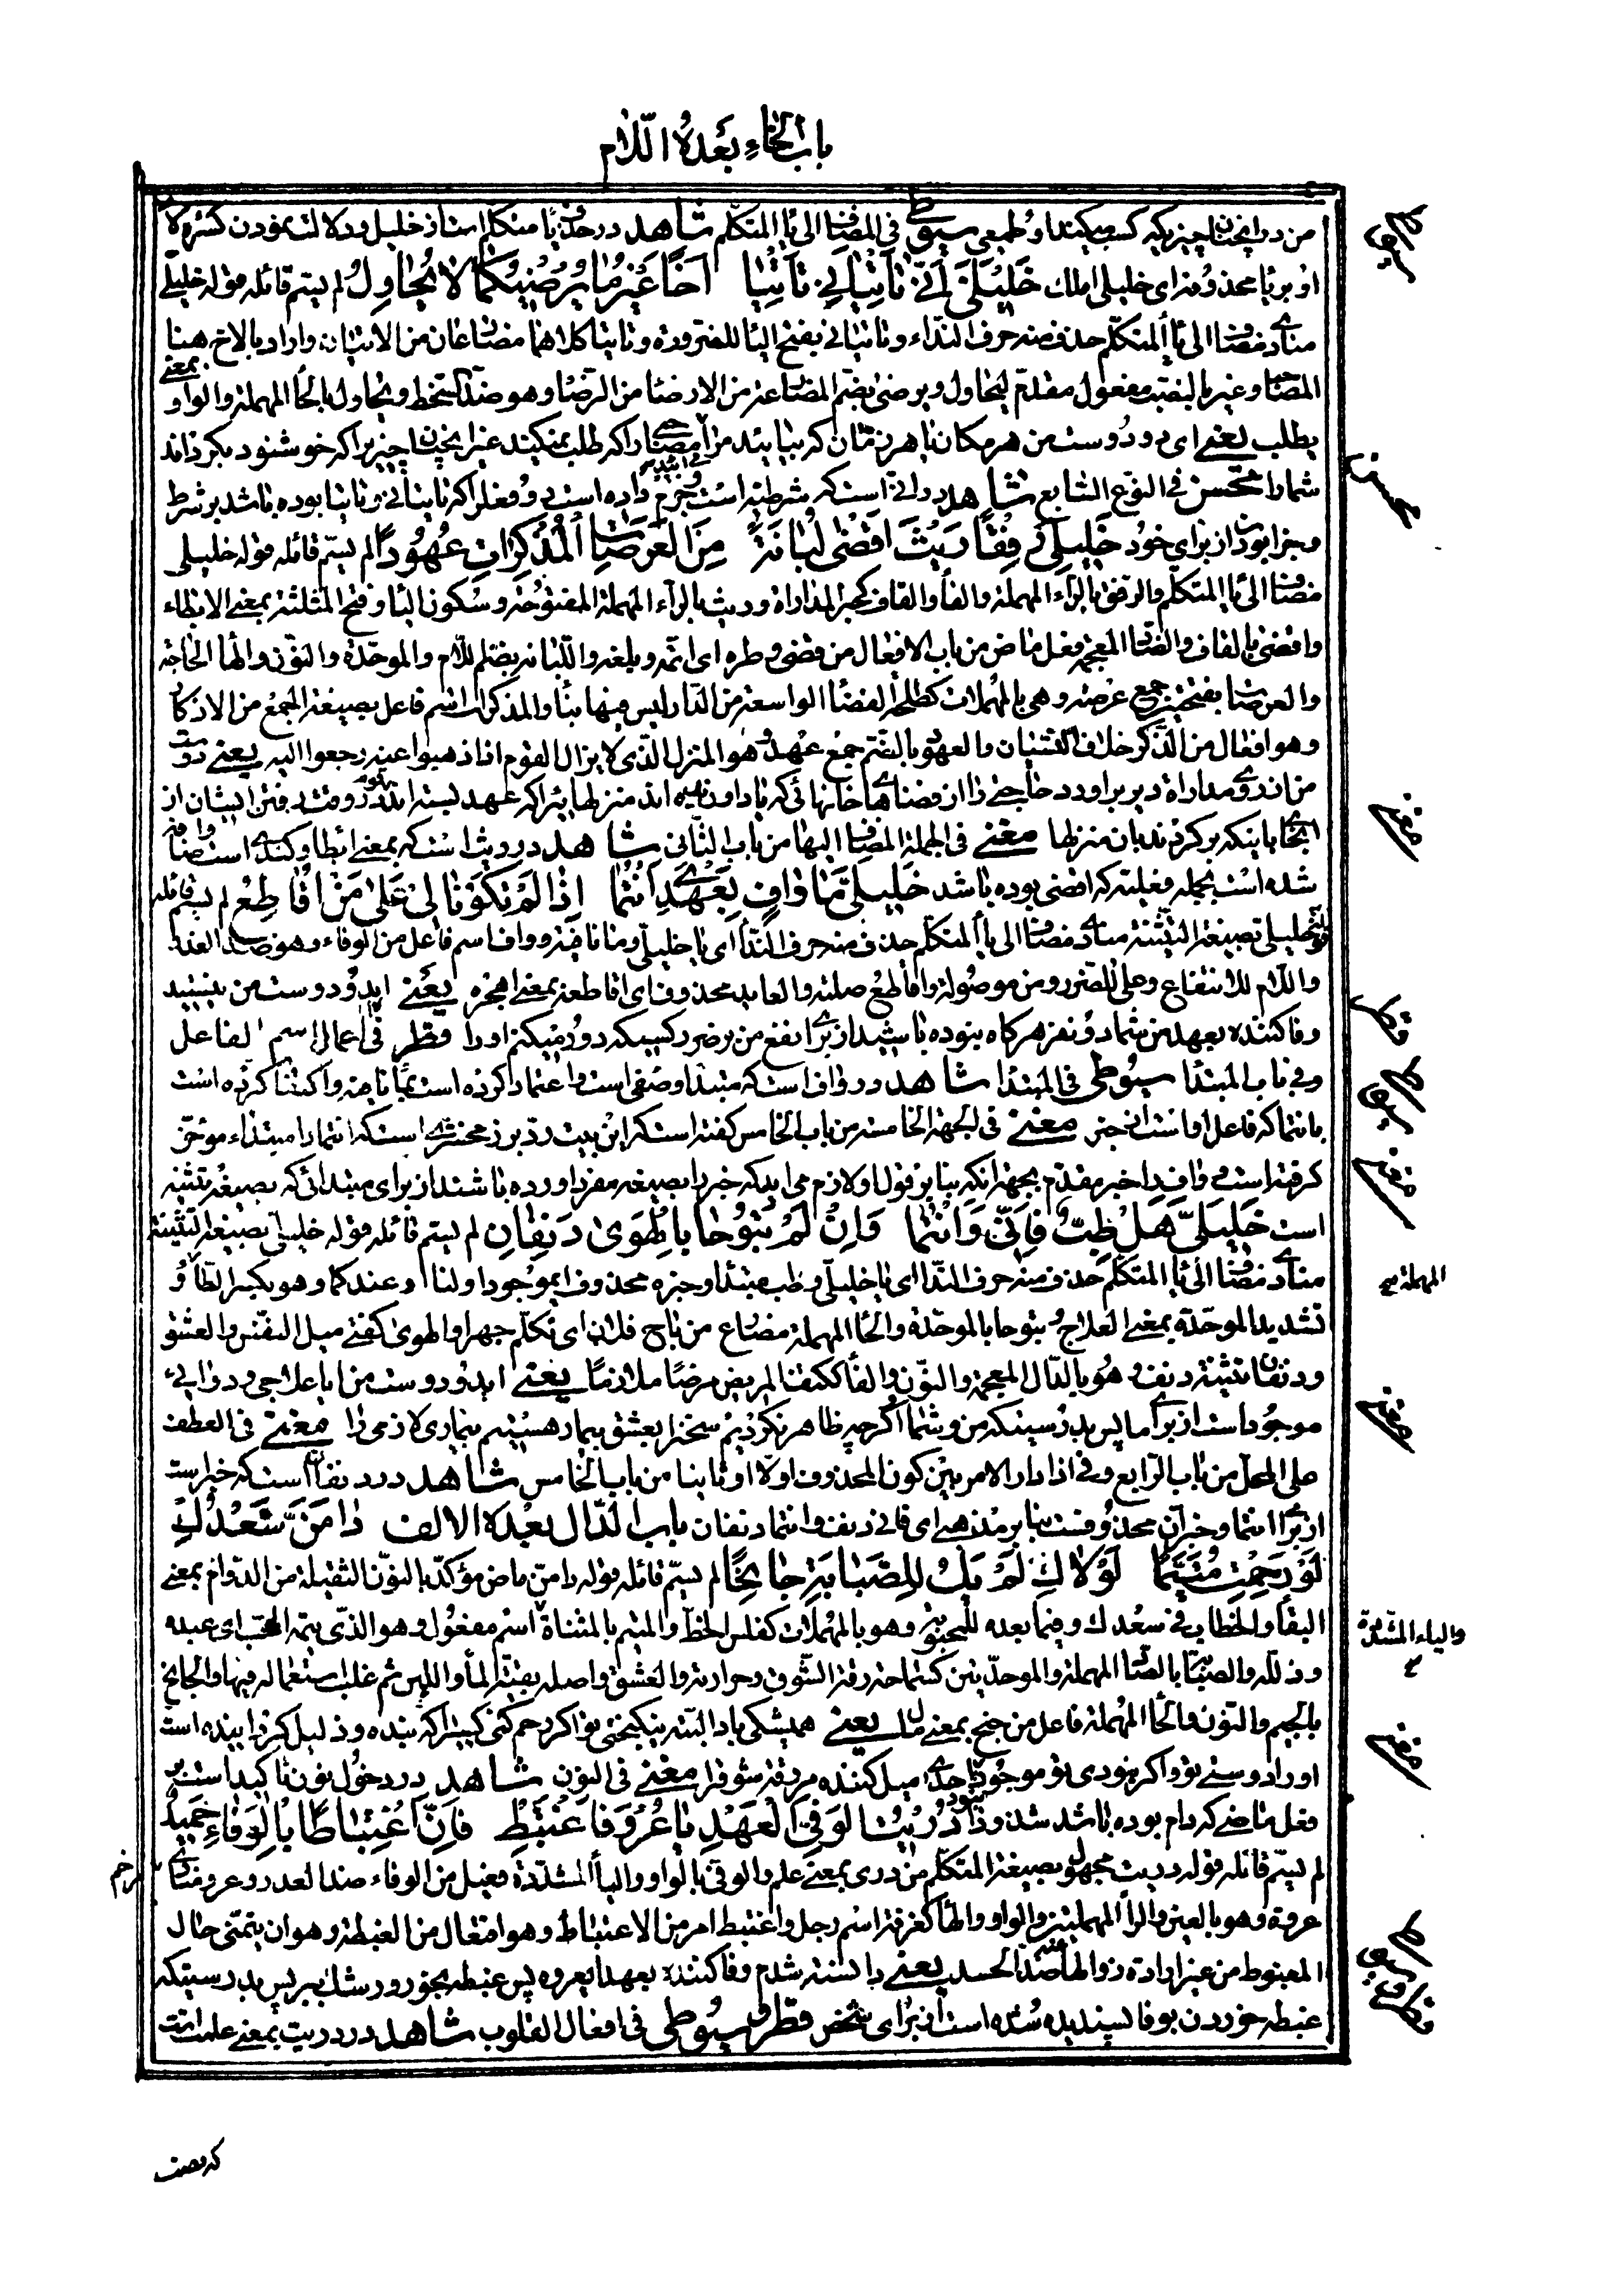 باب الخاء بعده اللام
من در انچنان چیزیکه کسب میکند او طمعی سیوطی فی المضاف الی یاء المتکلم شاهد در حذف یاء متکلم است از خلیل و دلالت نمودن کسره لام
او بر یاء محذوفه ای خلیلی املک خَلیلَیَّ اَنّی تَأتِیانِیَ تَأتِیا اَخاً غَیْرَ ما یُرْضیکُما لا یُحاوِلُ لم یسم قائله قوله خلیلی
منادی مضاف الی یاء المتکلم حذف منه حرف النداء و تاتیانی بفتح الیا للضرورة و تاتیا کلاهما مضارعان من الاتیان و اراد بالاخ هنا
المصاحب و غیر بالنصب مفعول مقدم لیحاول و یرضی بضم المضارعة من الارضاء من الرضا و هو ضد السخط و یحاول بالحاء المهملة والواو بمعنی
یطلب یعنی ای دو دوست من هر مکان یا هر زمان که بیایید مرا می‌آیید مصاحبی را که طلب نمیکند غیر انچنان چیزیرا که خوشنود بکرداند
شما را محسن فی النوع السابع شاهد در انی است که شرطیه است و جزم داده است دو فعل را که تاتیانی و تاتیا بوده باشد بر شرط
و جزا بودن از برای خود خَلیلَیَّ رِفْقاً رَیْثَ اَقْضی لُبانَةً مِنَ العَرَصاتِ المُذْکِراتِ عُهُوداً لم یسم قائله قوله خلیلی
مضاف الی یاء المتکلم والرفق بالراء المهملة والفاء والقاف کحبر المداراة و ریث بالراء المهملة المفتوحة و سکون الیا و فتح المثلثة بمعنی الابطاء
واقضی بالقاف والضاد المعجمة فعل ماض من باب الافعال من قضی وطره ای اتمه و بلغه واللبانة بضم اللام والموحدة والنون والهاء الحاجة
والعرصات بفتحتین جمع عرصة و هی بالمهملات کطلحة الفضاء الواسعة من الدار لیس فیها بناء والمذکرات اسم فاعل بصیغة الجمع من الاذکار
و هو افعال من الذکر خلاف النسیان والعهود بالضم جمع عهد و هو المنزل الذی لا یزال القوم اذا ذهبوا عنه رجعوا الیه یعنی دوست
من از روی مداراة دیر براورد حاجتی را از فضاهای خانهائی که یاد اورنده اند منزلهائیرا که عهد بسته اند قوم در وقت رفتن ایشان از
انجا باینکه برکردند بان منزلها مغنی فی الجملة المضاف الیها من باب الثانی شاهد در ریث است که بمعنی ابطاء و کندی است و اضافه
شده است بجمله فعلیه که اقضی بوده باشد خَلیلَیَّ ما وافٍ بِعَهْدی اَنْتُما اِذا لَمْ تَکُونا لی عَلی مَنْ اُقاطِعُ لم یسم قائله
قوله خلیلی بصیغة التثنیة منادی مضاف الی یاء المتکلم حذف منه حرف النداء ای یا خلیلی و ما نافیة و واف اسم فاعل من الوفاء و هو ضد الغدر
واللام للانتفاع و علی للضرر و من موصولة و اقاطع صلته والعاید محذوف ای اقاطعه بمعنی اهجره یعنی ای دو دوست من نیستید
وفا کننده بعهد من شما دو نفر هرکاه نبوده باشید از برای نفع من بر ضرر کسیکه دور میکنم او را قطر فی اعمال اسم الفاعل
و فی باب المبتدا سیوطی فی المبتدا شاهد در واف است که مبتدا وصفی است و اعتماد کرده است بماء نافیه و اکتفا کرده است
بانتما که فاعل او است از خبر مغنی فی الجهة الخامسة من باب الخامس کفته است که این بیت رد بر زمخشری است که انتما را مبتداء مؤخر
کرفته است و واف را خبر مقدم بجهة انکه بنا بر قول او لازم می اید که خبر را بصیغه مفرد اورده باشند از برای مبتدائی که بصیغه تثنیه
است خَلیلَیَّ هَلْ طِبٌّ فَاِنّی وَ اَنْتُما وَ اِنْ لَمْ تَبُوحا بِالهَوی دَنِفانِ لم یسم قائله قوله خلیلی بصیغة التثنیة
منادی مضاف الی یاء المتکلم حذف منه حرف النداء ای یا خلیلی و طب مبتدا و خبره محذوف ای موجود اولنا او عندکما و هو بکسر الطاء و
تشدید الموحدة بمعنی العلاج و تبوحا بالموحدة والحاء المهملة مضارع من باح فلان ای تکلم جهرا والهوی کفتی میل النفس والعشق
و دنفان تثنیة دنف و هو بالدال المعجمة والنون والفاء ککتف المریض مرضا ملازما یعنی ای دو دوست من ایا علاجی و دوایی
موجود است از برای ما پس بدرستیکه من و شما اکرچه ظاهر نکردیم سخن را بعشق بیمار هستیم بیماری لازمی را مغنی فی العطف
علی المحل من باب الرابع و فی اذا دار الامر بین کون المحذوف اولا او ثانیا من باب الخامس شاهد در دنفان است که خبر است
از برای انتما و خبر ان محذوفست بنا بر مذهبی ای فانی دنف و انتما دنفان باب الدال بعده الالف دامَنَّ سَعْدُکِ
لَوْ رَحِمْتِ مُتَیَّماً لَوْلاکِ لَمْ یَکُ لِلصَّبابَةِ جانِحاً لم یسم قائله قوله دامن ماض مؤکد بالنون الثقیلة من الدوام بمعنی
البقاء والخطاب فی سعدک و فیما بعده للمحبوبة و هو بالمهملات کفلس الحظ والمتیم بالمثناة اسم مفعول و هو الذی یتمه الحب ای عبده
و ذلله والصبابة بالصاد المهملة والموحدتین کسماحة رقة الشوق و حرارته والعشق و اصله بقیة الماء واللبن ثم غلب استعماله فیها والجانح
بالجیم والنون والحاء المهملة فاعل من جنح بمعنی مال یعنی همیشکی باد البته نیکبختی تو اکر رحم کنی کسیرا که بنده و ذلیل کردانیده است
او را دوستی تو و اکر نبودی تو موجود نبود احدی میل کننده مر رقة شوق را مغنی فی النون شاهد در دخول نون تاکید است بر
فعل ماضی که دام بوده باشد شذوذا دُرِیْتَ الوَفِیَّ العَهْدِ یا عُرْوَ فَاغْتَبِطْ فَاِنَّ اغْتِباطاً بِالوَفاءِ حَمیدٌ
لم یسم قائله قوله دریت مجهول بصیغة المتکلم من دری بمعنی علم والوفی بالواو والیاء المشددة فعیل من الوفاء ضد الغدر و عرو منادی مرخم
عروة و هو بالعین والراء المهملتین والواو والهاء کغرفة اسم رجل و اغتبط امر من الاغتباط و هو افتعال من الغبطة و هو ان یتمنی حال
المغبوط من غیر ارادة زوالها منه ضد الحسد یعنی دانسته شدم وفا کننده بعهد ایعروه پس غبطه بخور و رشک ببر پس بدرستیکه
غبطه خوردن بوفا پسندیده شده است از برای شخص قطر و سیوطی فی افعال القلوب شاهد در دریت بمعنی علمت است
سیوطی
محسن
مغنی
قطر
سیوطی
مغنی
المهملة صح
مغنی
والیاء المشددة
مغنی
سیوطی
قطر
که نصب